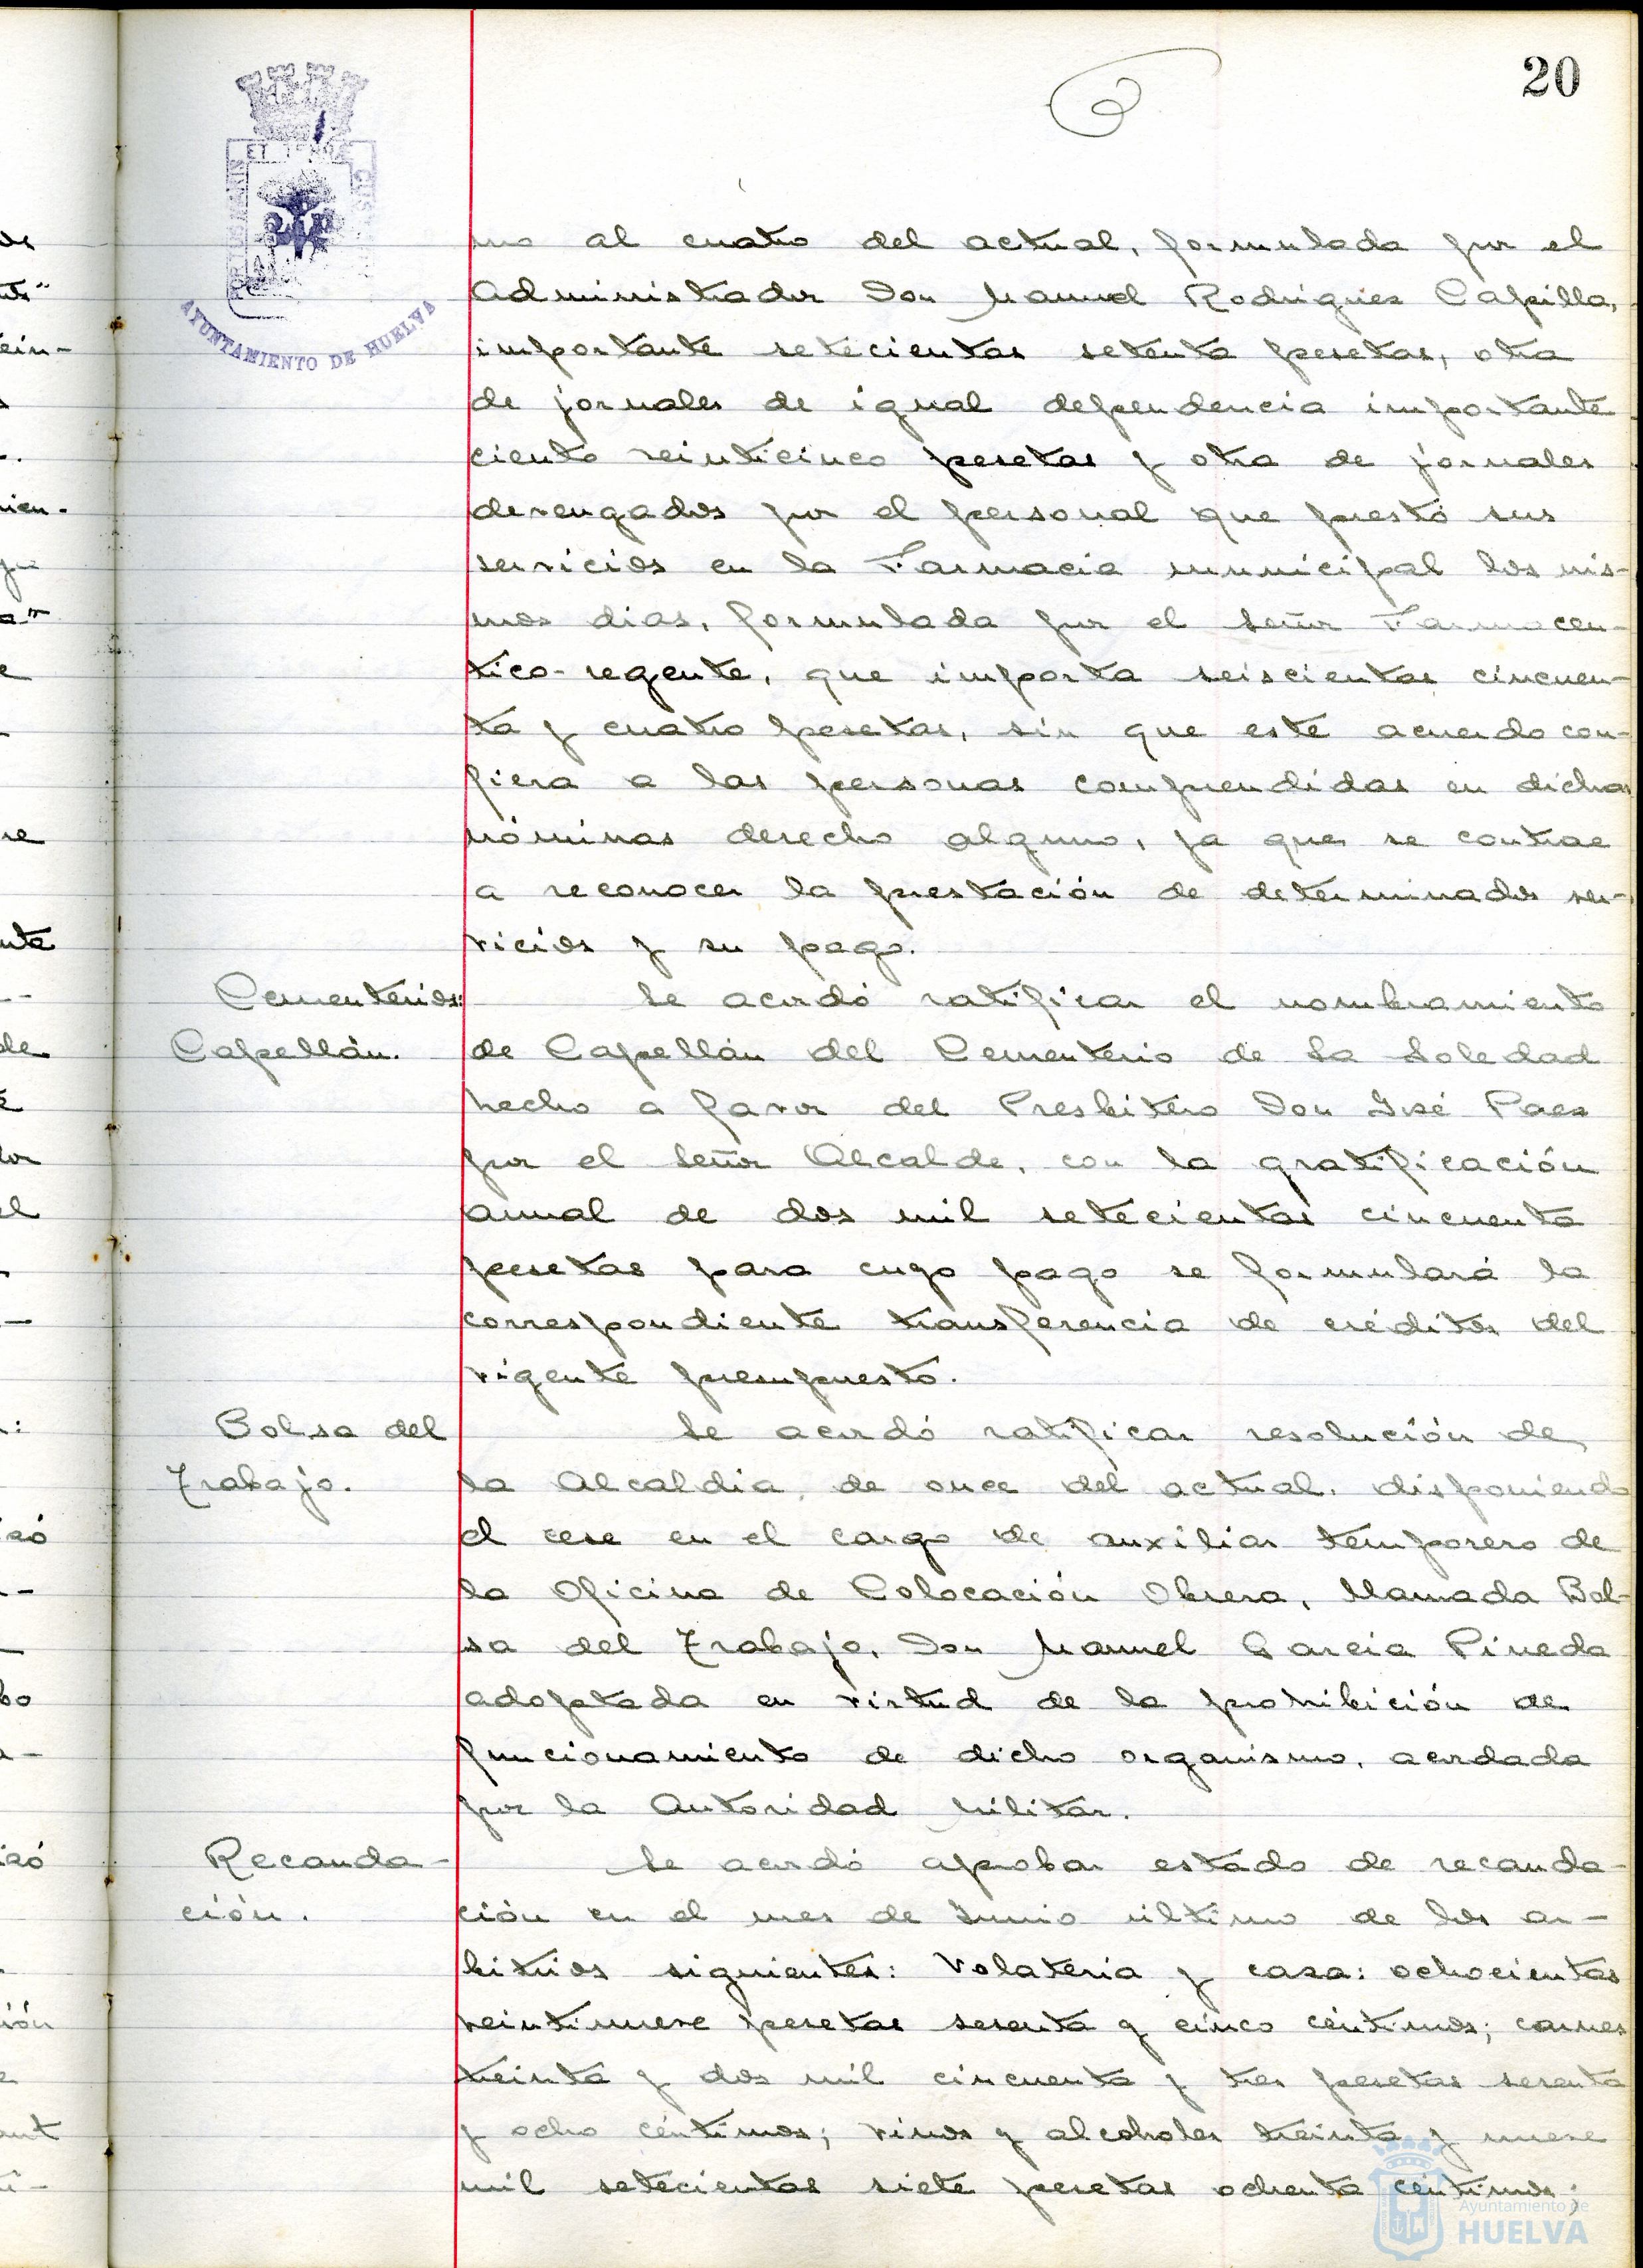 20
PORTUS MARIS ET TERRÆ CUSTODIA
AYUNTAMIENTO DE HUELVA
mo al cuatro del actual, formulada por el
Administrador Don Manuel Rodriguez Capilla,
importante setecientas setenta pesetas, otra
de jornales de igual dependencia importante
ciento veinticinco pesetas y otra de jornales
devengados por el personal que prestó sus
servicios en la Farmacia municipal los mis-
mos dias, formulada por el señor Farmaceu-
tico-regente, que importa seiscientas cincuen-
ta y cuatro pesetas, sin que este acuerdo con-
fiera a las personas comprendidas en dichas
nóminas derecho alguno, ya que se contrae
a reconocer la prestación de determinados ser-
vicios y su pago.
Cementerios:
Capellán.
Se acordó ratificar el nombramiento
de Capellán del Cementerio de La Soledad
hecho a favor del Presbitero Don José Paez
por el Señor Alcalde, con la gratificación
anual de dos mil setecientas cincuenta
pesetas para cuyo pago se formulará la
correspondiente transferencia de créditos del
vigente presupuesto.
Bolsa del
Trabajo.
Se acordó ratificar resolución de
la Alcaldia, de once del actual, disponiendo
el cese en el cargo de auxiliar temporero de
la Oficina de Colocación Obrera, llamada Bol-
sa del Trabajo, Don Manuel Garcia Pineda
adoptada en virtud de la prohibición de
funcionamiento de dicho organismo, acordada
por la Autoridad Militar.
Recauda-
ción.
Se acordó aprobar estado de recauda-
ción en el mes de Junio último de los ar-
bitrios siguientes: Volateria y caza: ochocientas
veintinueve pesetas sesenta y cinco céntimos; carnes
treinta y dos mil cincuenta y tres pesetas sesenta
y ocho céntimos; vinos y alcoholes treinta y nueve
mil setecientas siete pesetas ochenta céntimos;
Ayuntamiento de
HUELVA